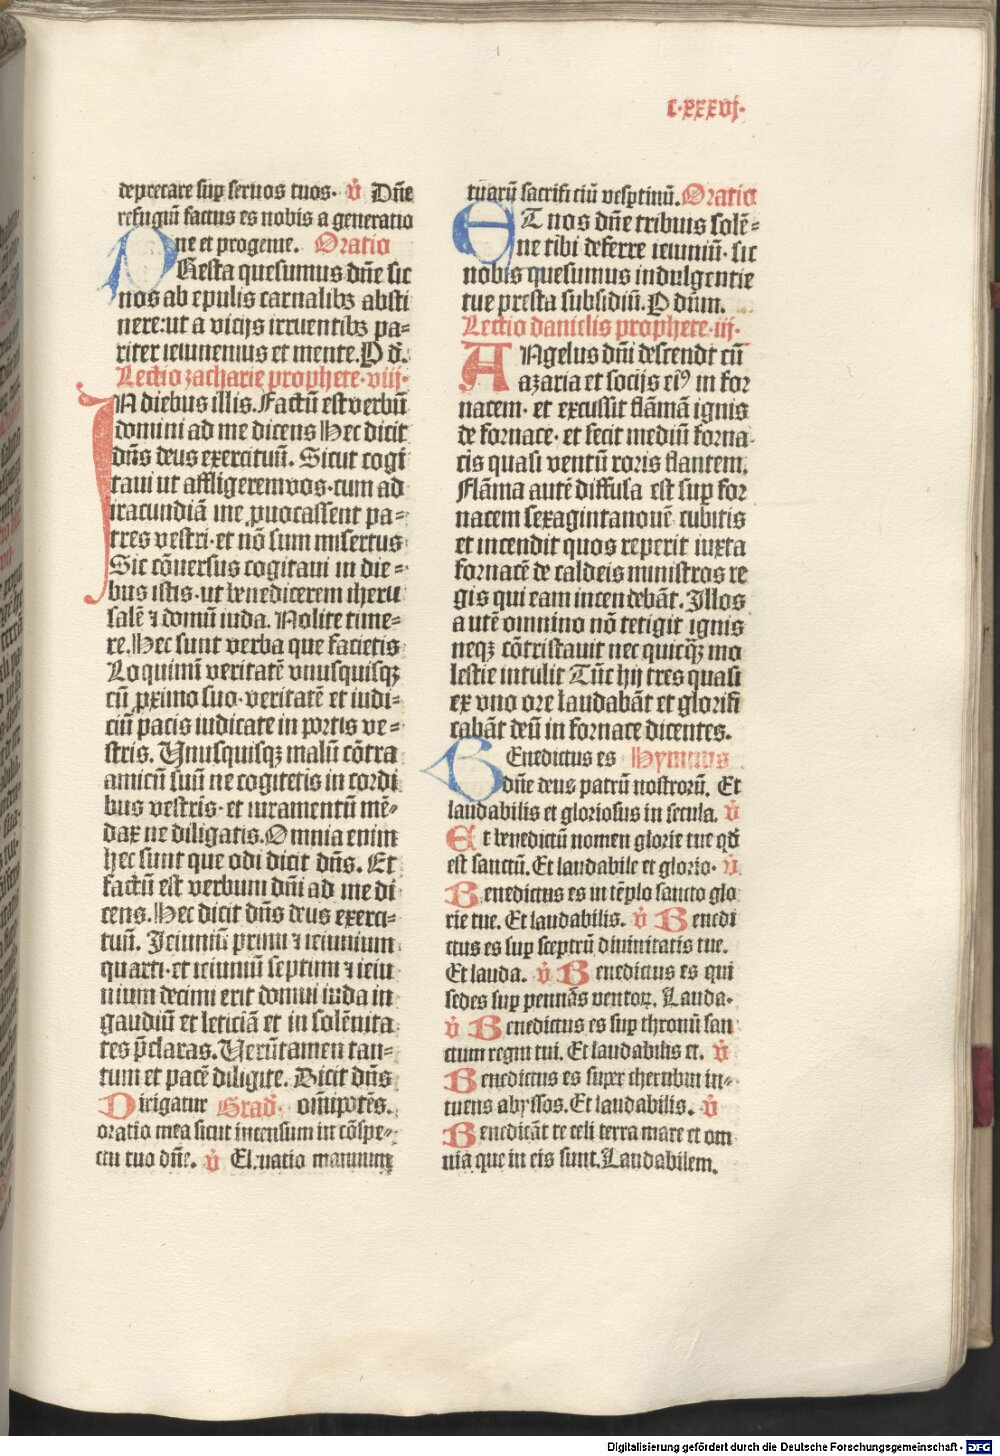 c·xxxvj·
deprecare suꝑ seruos tuos· ꝟ Dn̄e
refugiū factus es nobis a generatio
ne et progenie. Oratio
PResta quesumus dn̄e sic
nos ab epulis carnalibꝫ absti
nere:ut a vicijs irruentibꝫ pa⸗
riter ieiunemus et mente.P d̄.
Lectio zacharie prophete·viij·
IN diebus illis.Factū est verbū
domini ad me dicens Hec dicit
dn̄s deus exercituū. Sicut cogi
taui ut affligerem vos·cum ad
iracundiā me ꝓuocassent pa⸗
tres vestri·et nō sum misertus
Sic cōuersus cogitaui in die⸗
bus istis·ut benedicerem iheru
salē ⁊ domū iuda. Nolite time⸗
re.Hec sunt verba que facietis
Loquimī veritatē vnusquisqꝫ
cū ꝓximo suo·veritatē et iudi⸗
ciū pacis iudicate in portis ve⸗
stris. Vnusquisqꝫ malū cōtra
amicū suū ne cogitetis in cordi
bus vestris·et iuramentū mē⸗
dax ne diligatis.Omnia enim
hec sunt que odi dicit dn̄s. Et
factū est verbum dn̄i ad me di
cens.Hec dicit dn̄s deus exerci⸗
tuū. Jeiuniū primi ⁊ ieiunium
quarti·et ieiuniū septimi ⁊ ieiu
nium decimi erit domui iuda in
gaudiū et leticiā et in solēnita
tes p̄claras.Verūtamen tan⸗
tum et pacē diligite. Dicit dn̄s
Dirigatur Grad̄. om̄ipotēs.
oratio mea sicut incensum in cōspe⸗
ctu tuo dn̄e. ꝟ Eleuatio manuum
tuarū sacrificiū vesꝑtinū.Oratio
ET nos dn̄e tribuis solē⸗
ne tibi deferre ieiuniū· sic
nobis quesumus indulgentie
tue presta subsidiū.P dūm.
Lectio danielis prophete·iij·
ANgelus dn̄i descendt cū
azaria et socijs eiꝰ in for
nacem· et excussit flāmā ignis
de fornace· et fecit mediū forna
cis quasi ventū roris flantem.
Flāma autē diffusa est suꝑ for
nacem sexagintanouē cubitis
et incendit quos reperit iuxta
fornacē de caldeis ministros re
gis qui eam incendebāt.Illos
autē omnino nō tetigit ignis
neqꝫ cōtristauit nec quicq̄ꝫ mo
lestie intulit Tūc hij tres quasi
ex vno ore laudabāt et glorifi
cabāt deū in fornace dicentes.
BEnedictus es Hymnus
dn̄e deus patrū nostrorū. Et
laudabilis et gloriosus in secula. ꝟ
Et benedictū nomen glorie tue qd̄
est sanctū.Et laudabile et glorio· ꝟ
Benedictus es in tēplo sancto glo
rie tue. Et laudabilis. ꝟ Benedi
ctus es suꝑ sceptrū diuinitatis tue.
Et lauda. ꝟ Benedictus es qui
sedes suꝑ pennas ventoꝝ. Lauda·
ꝟ Benedictus es suꝑ thronū san
ctum regni tui. Et laudabilis et. ꝟ
Benedictus es super cherubin in⸗
tuens abyssos.Et laudabilis. ꝟ
Benedicāt te celi terra mare et om
nia que in eis sunt.Laudabilem.
Digitalisierung gefördert durch die Deutsche Forschungsgemeinschaft - DFG